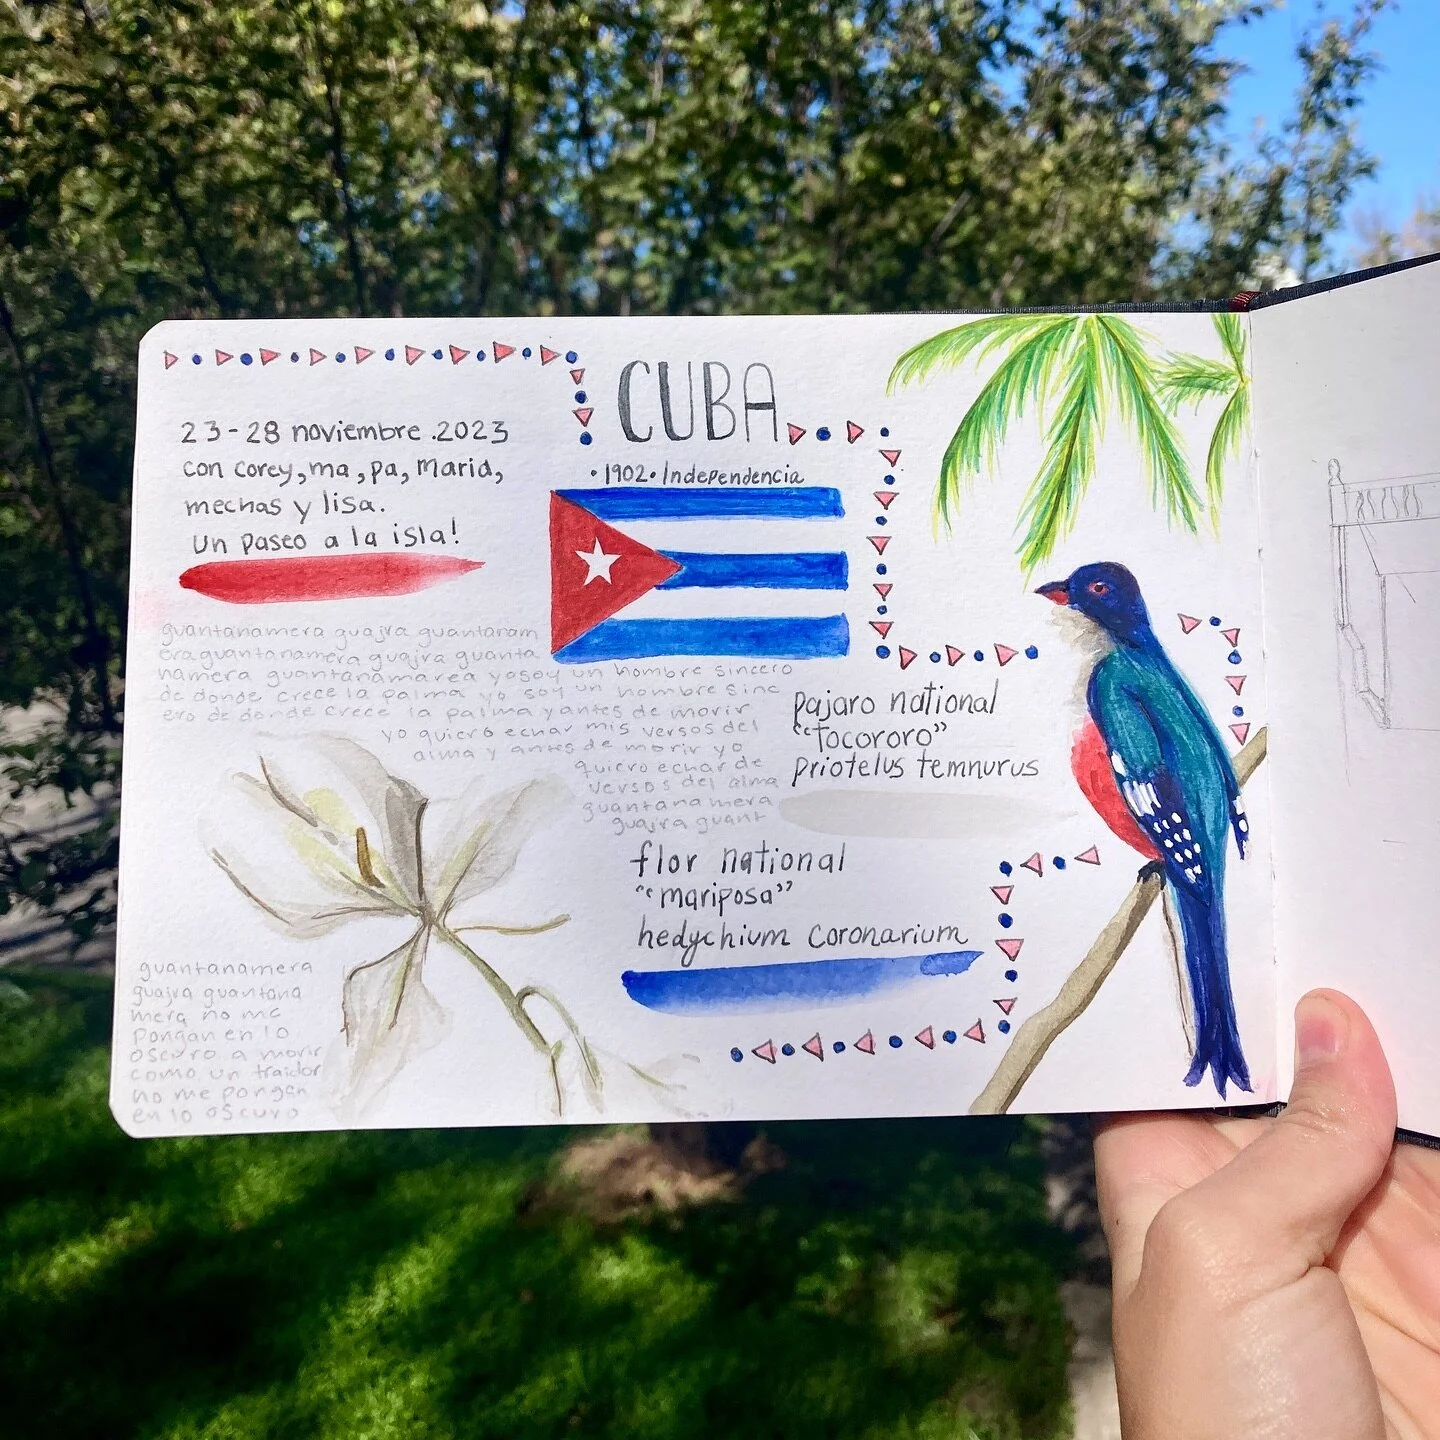 CUBA
• 1902 • Independencia
23-28 noviembre .2023
con corey, ma, pa, maria,
mechas y lisa.
un paseo a la isla!
guantanamera guajra guantanam
era guantanamera guajra guanta
namera guantanamarea yo soy un hombre sincero
de donde crece la palma yo soy un hombre sinc
ero de donde crece la palma y antes de morir
yo quiero echar mis versos del
alma y antes de morir yo
quiero echar de
versos del alma
guantanamera
guajra guant
pajaro national
“tocororo”
priotelus temnurus
flor national
“mariposa”
hedychium coronarium
guantanamera
guajra guantana
mera no me
pongan en lo
oscuro a morir
como un traidor
no me pongan
en lo oscuro